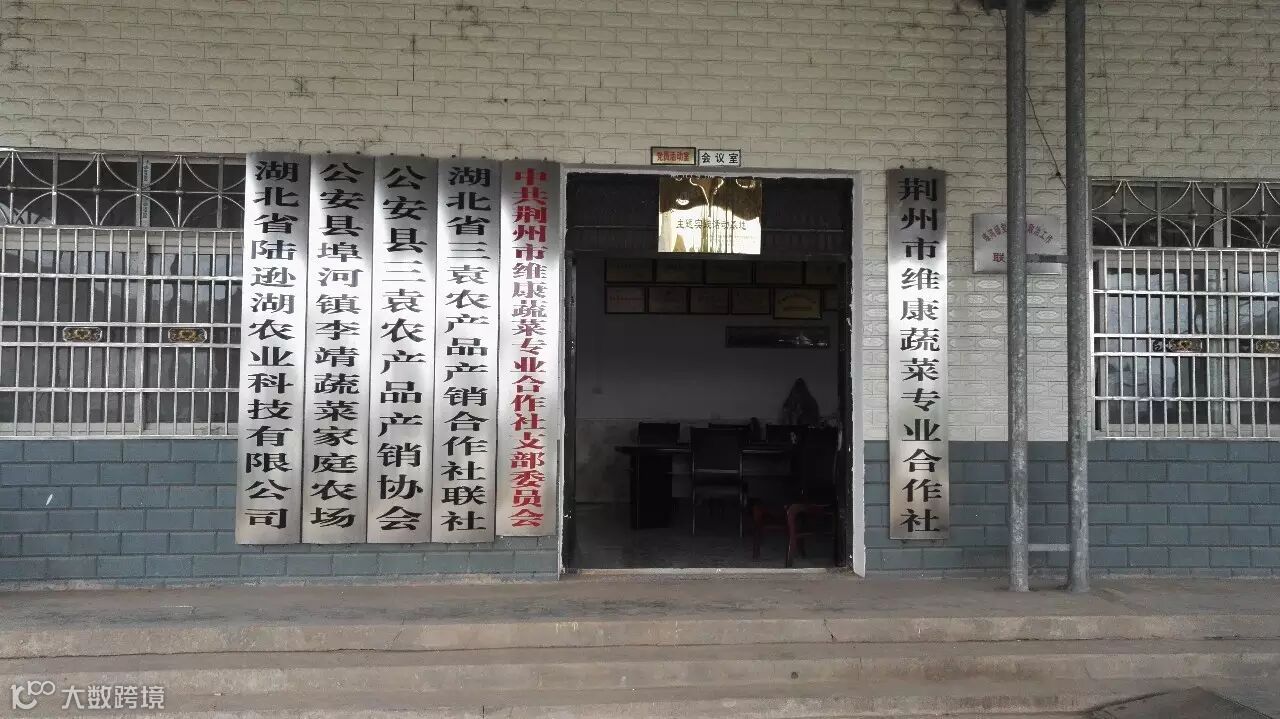 湖北省陆逊湖农业科技有限公司
公安县埠河镇李靖蔬菜家庭农场
公安县三袁农产品产销协会
湖北省三袁农产品产销合作社联社
中共荆州市维康蔬菜专业合作社支部委员会
党员活动室
会议室
主题实践活动基地
荆州市维康蔬菜专业合作社
大数跨境